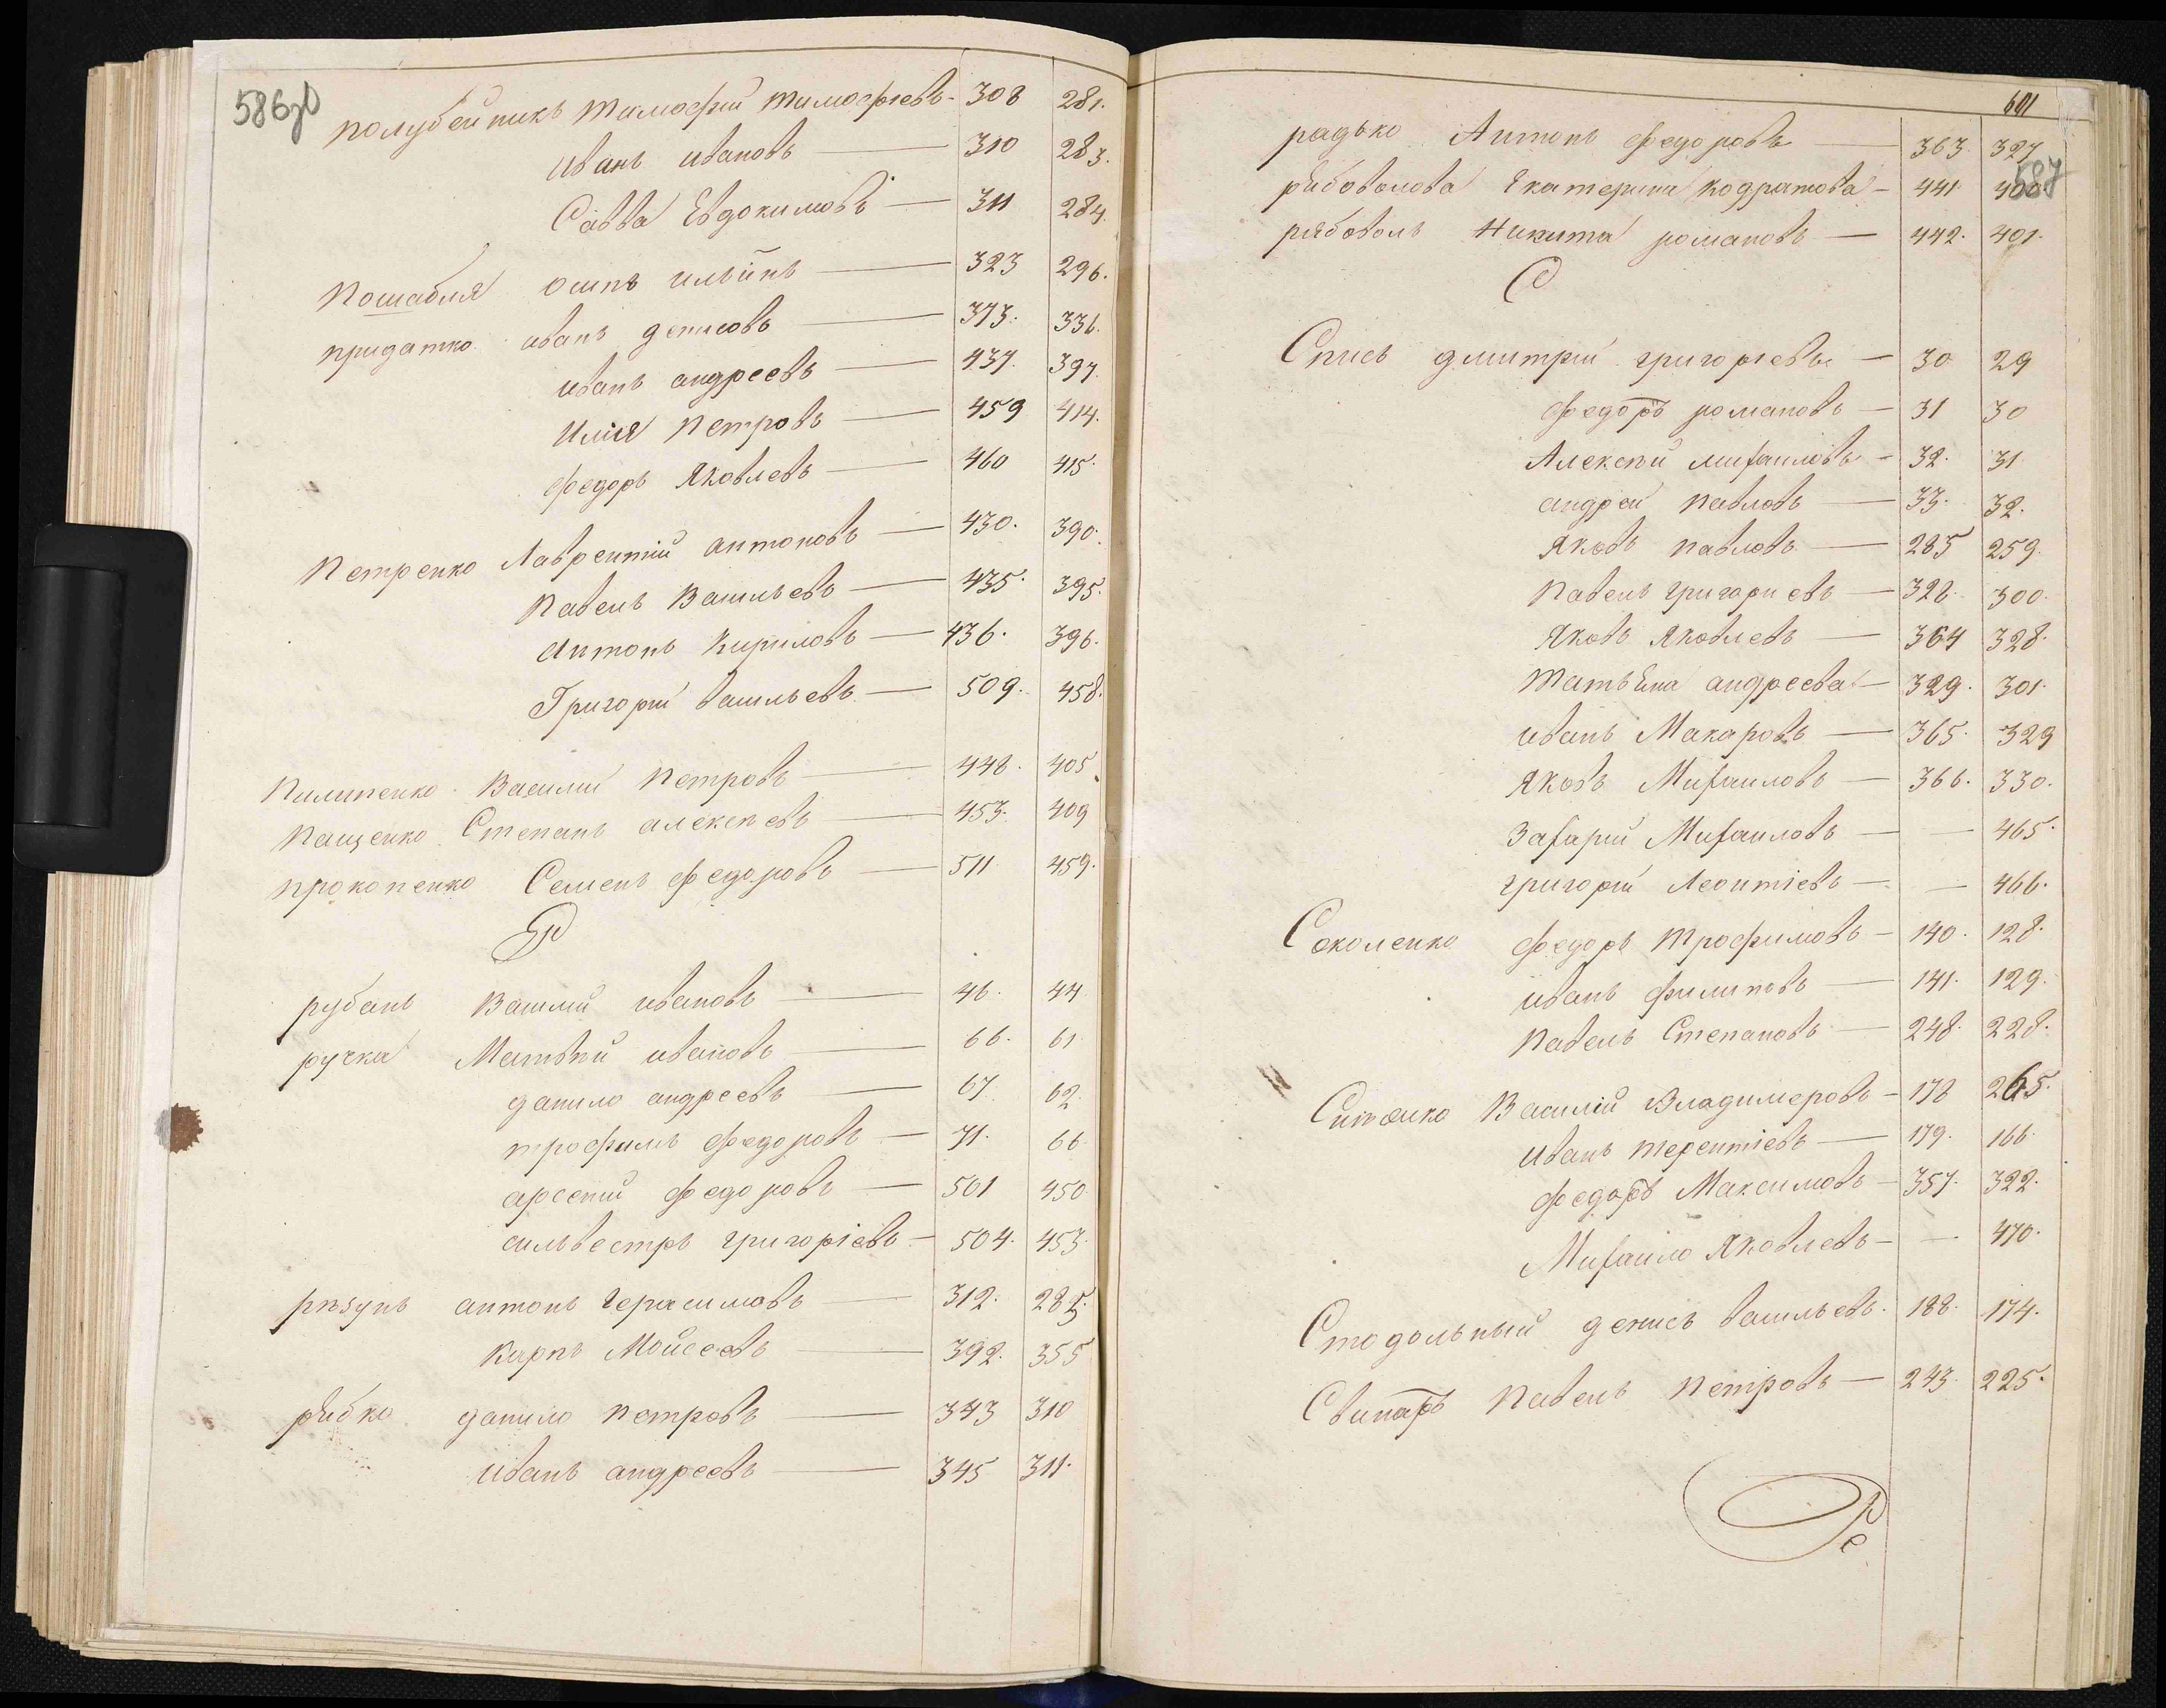 586зв
полубейникъ тимофей тимофѣевъ - 308 281.
иванъ ивановъ — 310 283.
Савва Евдокимовъ — 311 284.
Пошабля осипъ ильинъ — 323 296.
придатко иванъ денисовъ — 373. 336.
иванъ андреевъ — 437. 397.
Илия петровъ — 459 414.
федоръ Яковлевъ — 460 415.
Петренко Лаврентий антоновъ — 430. 390.
павелъ Васильевъ — 435. 395.
антонъ Кириловъ — 436. 396.
Григорий васильевъ — 509. 458.
Пилипенко Василий петровъ — 448. 405.
Пащенко Степанъ алексѣевъ — 453. 409
прокопенко Семенъ федоровъ — 511 459.
Р
рубанъ Василий ивановъ — 46. 44
ручка Матвѣй ивановъ — 66. 61
данило андреевъ — 67 62.
трофимъ федоровъ — 71. 66
арсений федоровъ — 501 450.
сильвестръ григоріевъ — 504. 453.
рѣзунъ антонъ герасимовъ — 312. 285.
Карпъ Мойсеевъ — 392. 355
рябко данило петровъ — 343 310
иванъ андреевъ — 345 311.
601
радько Антонъ федоровъ — 363. 327
587
рябоволова Екатерина кодратова — 441 400
рябоволъ Никита романовъ — 442. 401.
С
Спись дмитрий григоріевъ — 30 29
федоръ романовъ — 31 30
Алексѣй михаиловъ — 32. 31
андрей павловъ — 33. 32.
Яковъ павловъ — 285 259.
павелъ григориевъ — 328. 300.
Яковъ Яковлевъ — 364 328.
татьяна андреева — 329. 301.
иванъ Макаровъ — 365. 329
Яковъ Михаиловъ — 366. 330.
Захарий Михаиловъ — — 465.
григорий Леонтіевъ — — 466.
Соколенко федоръ трофимовъ — 140. 128.
иванъ филиповъ — 141. 129.
павелъ Степановъ — 248. 228.
Василій Владимеровъ — 178 265.
иванъ терентіевъ — 179. 166.
федоръ Максимовъ — 357. 322.
Михаило Яковлевъ — — 470.
Стодольный денисъ васильевъ. 188. 174.
Свинаръ павелъ петровъ — 243. 225.